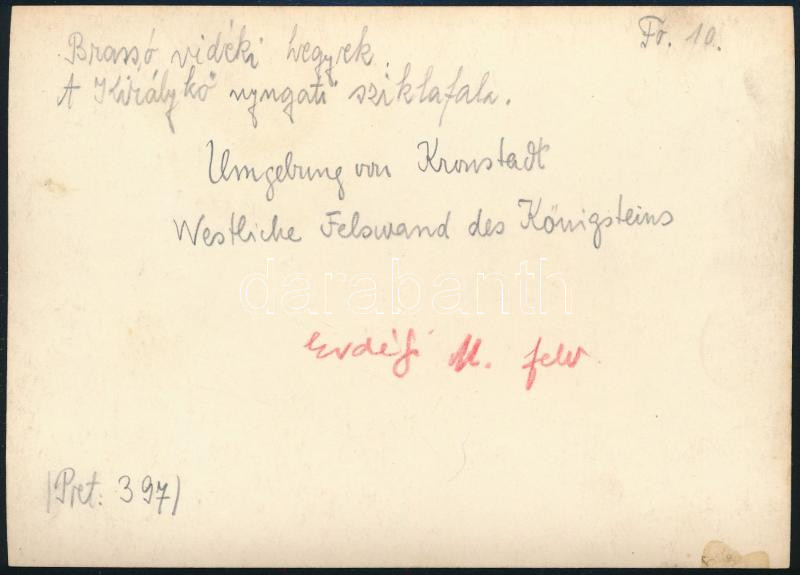 Fo. 10.
Brassó vidéki hegyek
A Királykő nyugati sziklafala.
Umgebung von Kronstadt
Westliche Felswand des Königsteins
darabanth
Erdélyi M. felv
(Pret. 397)